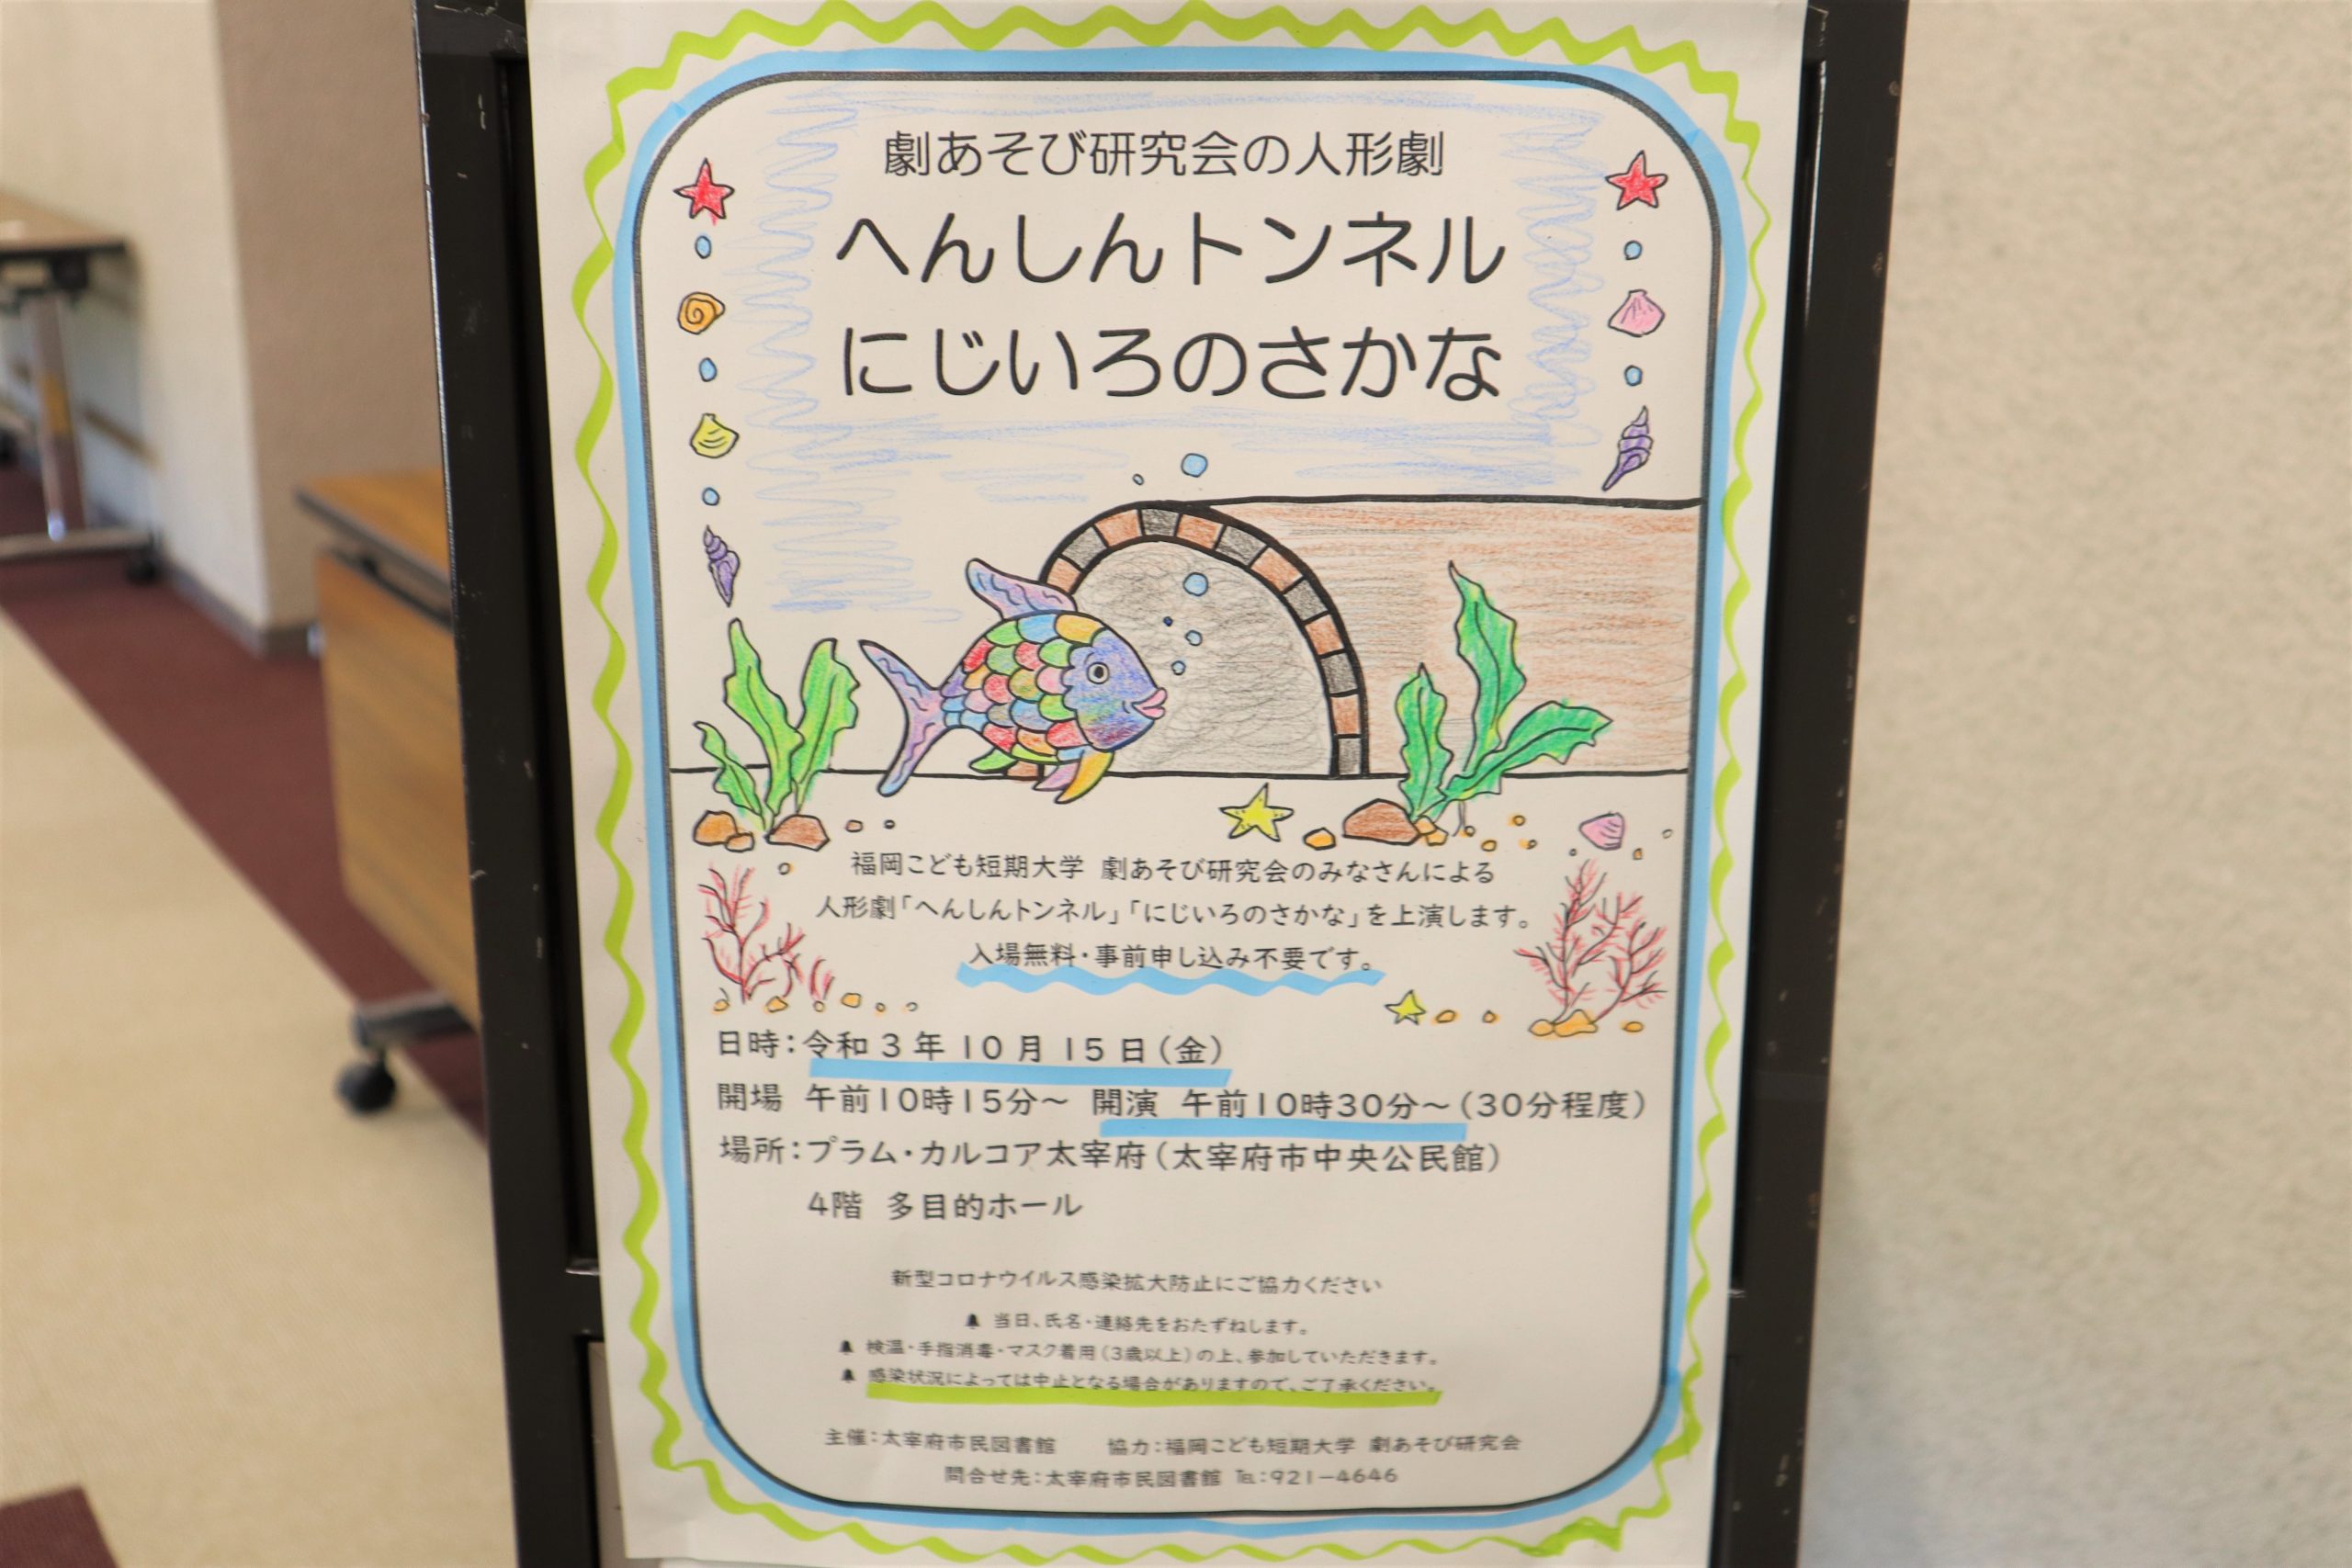 劇あそび研究会の人形劇
へんしんトンネル
にじいろのさかな
福岡こども短期大学 劇あそび研究会のみなさんによる
人形劇「へんしんトンネル」「にじいろのさかな」を上演します。
入場無料・事前申し込み不要です。
日時：令和3年10月15日（金）
開場 午前10時15分～ 開演 午前10時30分～（30分程度）
場所：プラム・カルコア太宰府（太宰府市中央公民館）
4階 多目的ホール
新型コロナウイルス感染拡大防止にご協力ください
当日、氏名・連絡先をおたずねします。
検温・手指消毒・マスク着用（3歳以上）の上、参加していただきます。
感染状況によっては中止となる場合がありますので、ご了承ください。
主催：太宰府市民図書館 協力：福岡こども短期大学 劇あそび研究会
問合せ先：太宰府市民図書館 ℡：921－4646